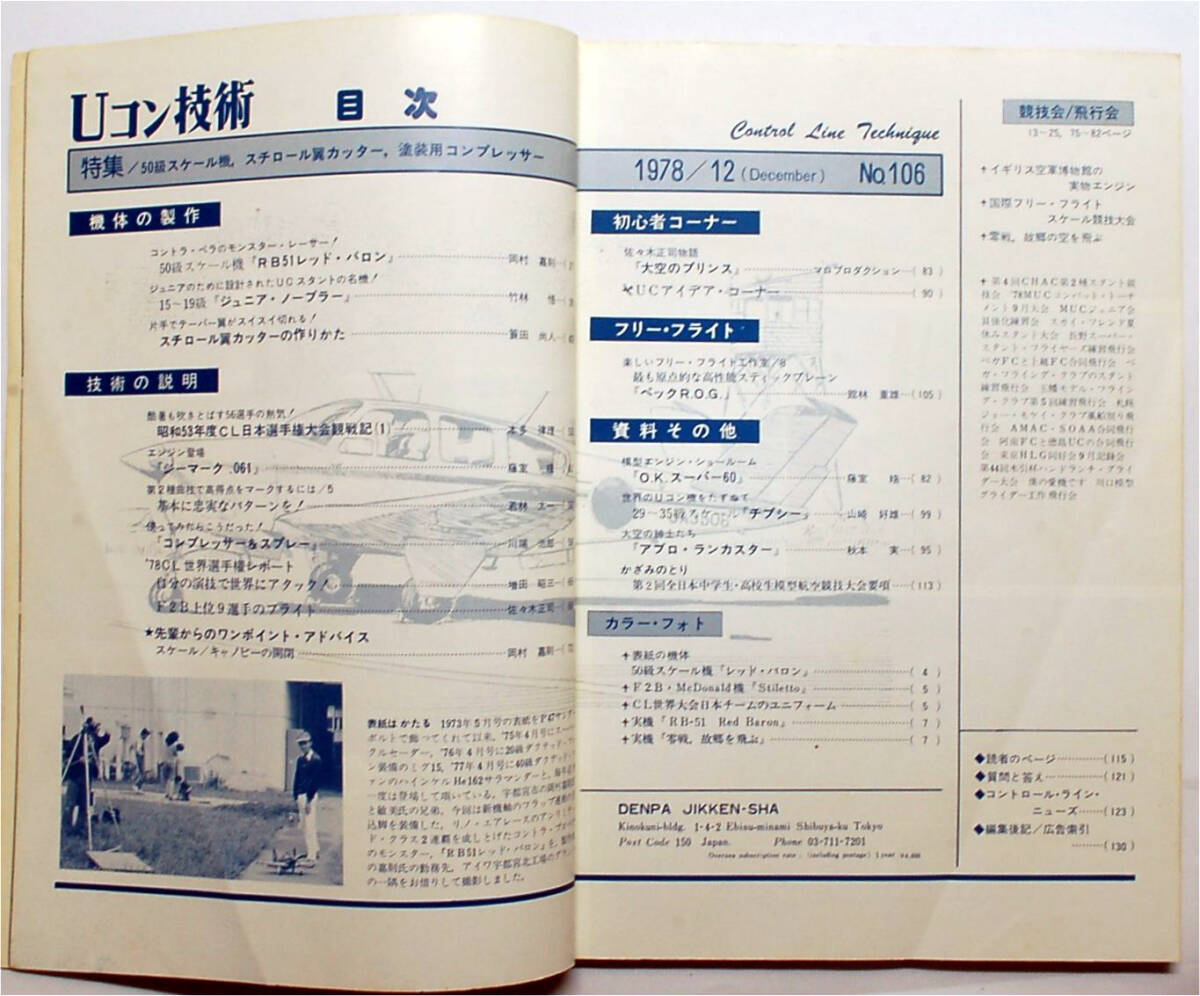 Uコン技術 目次
特集/50級スケール機, スチロール翼カッター, 塗装用コンプレッサー
機体の製作
コントラ・ペラのモンスター・レーサー!
50級スケール機『RB51レッド・バロン』 岡村 嘉則
ジュニアのために設計されたUCスタントの名機!
15~19級『ジュニア・ノーブラー』 竹林 悟
片手でテーパー翼がスイスイ切れる!
スチロール翼カッターの作りかた 箕田 尚人
技術の説明
酷暑も吹きとばす56選手の熱気!
昭和53年度CL日本選手権大会観戦記(1) 本多
エンジン登場
『ジーマーク .061』
第2種曲技で高得点をマークするには/5
基本に忠実なパターンを! 若林
使ってみたらこうだった!
『コンプレッサー&スプレー』 川端
'78CL世界選手権レポート
自分の演技で世界にアタック! 増田 昭三
F2B上位9選手のフライト 佐々木正司
★先輩からのワンポイント・アドバイス
スケール/キャノピーの開閉 岡村 嘉則
表紙はかたる 1973年5月号の表紙をP47サンダー
ボルトで飾ってくれて以来,'75年4月号にスー
クルセーダー,'76年4月号に20級ダクテッド・
ン装備のミグ15,'77年4月号に40級ダクテッド
ァンのハインケルHe162サラマンダーと,毎年
一度は登場して頂いている,宇都宮市の岡村
と敏美氏の兄弟。今回は新機軸のフラップ連動の
込脚を装備した,リノ・エアレースのアンリミ
ド・クラス2連覇を成しとげたコントラ・プロ
のモンスター,『RB51レッド・バロン』を,
の嘉則氏の勤務先,アイワ宇都宮北工場のグラン
の一隅をお借りして撮影しました。
Control Line Technique
1978/12 (December) No.106
初心者コーナー
佐々木正司物語
『大空のプリンス』 マロプロダクション (83)
UCアイデア・コーナー (90)
フリー・フライト
楽しいフリー・フライト工作室/8
最も原点的な高性能スティックプレーン
『ペックR.O.G.』 館林 重雄 (105)
資料その他
模型エンジン・ショールーム
『O.K.スーパー60』 (82)
世界のUコン機をたずねて
29~35級スケール『チプシー』 山崎 好雄 (99)
大空の紳士たち
『アブロ・ランカスター』 秋本 実 (95)
かざみのとり
第2回全日本中学生・高校生模型航空競技大会要項 (113)
カラー・フォト
✈表紙の機体
50級スケール機『レッド・バロン』 (4)
✈F2B・McDonald機『Stiletto』 (5)
✈CL世界大会日本チームのユニフォーム (5)
✈実機『RB-51 Red Baron』 (7)
✈実機『零戦,故郷を飛ぶ』 (7)
DENPA JIKKEN-SHA
Kinokuni-bldg. 1-4-2 Ebisu-minami Shibuya-ku Tokyo
Post Code 150 Japan. Phone 03-711-7201
Oversea subscription rate: (including postage) 1 year
競技会/飛行会
13~25, 75~82ページ
✈イギリス空軍博物館の
実物エンジン
✈国際フリー・フライト
スケール競技大会
✈零戦,故郷の空を飛ぶ
✈第4回CHAC第2種スタント競
技会 '78MUCコンバット・トーナ
メント9月大会 MUCジュニア会
員強化練習会 スカイ・フレンド夏
休みスタント大会 長野スーパー・
スタント・フライヤーズ練習飛行会
ベガFCと上越FC合同飛行会 ベ
ガ・フライング・クラブのスタント
練習飛行会 玉幡モデル・フライン
グ・クラブ第5回練習飛行会 札幌
ジョー・モケイ・クラブ風船割り飛
行会 AMAC・SOAA合同飛行
会 阿南FCと徳島UCの合同飛行
会 東京HLG同好会9月記録会
第44回木引杯ハンドランチ・グライ
ダー大会 僕の愛機です 川口模型
グライダー工作飛行会
◆読者のページ (115)
◆質問と答え (121)
◆コントロール・ライン・
ニューズ (123)
◆編集後記/広告索引
(130)